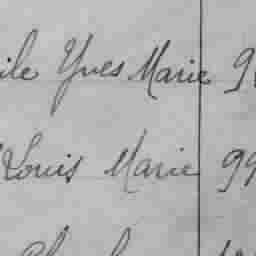 ile Yves Marie 9
Louis Marie 99